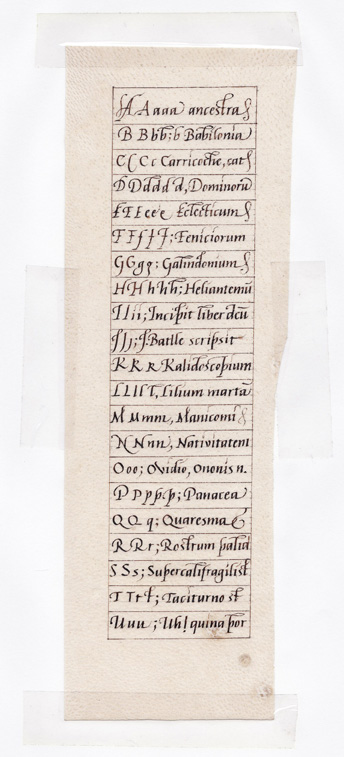 A A a a a a ancestra
B B b b; b Babilonia
C C C c Carricoche, cat
D D d d d d, Dominorū
E E E e e e Eclecticum
F F f f f f; Feniciorum
G G g g; Galindonium
H H h h h; Heliantemū
I I i i; Incipit liber dcū
J J j; J. Batlle scripsit
K K k Kalidoscopium
L L l l L, Lilium martā
M M m m, Manicomi
N N n n, Nativitatem
O o o; Ovidio, Ononis n.
P P p p p; Panacea
Q Q q; Quaresma &
R R r; Rostrum palid
S S s; Supercalifragilist
T T t t; Taciturno st
U u u ; Uh! quina por